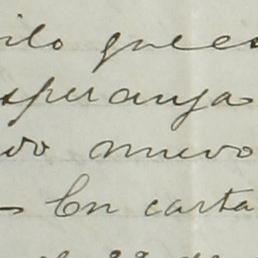 ilo que es
speranza
do nuevo
En carta